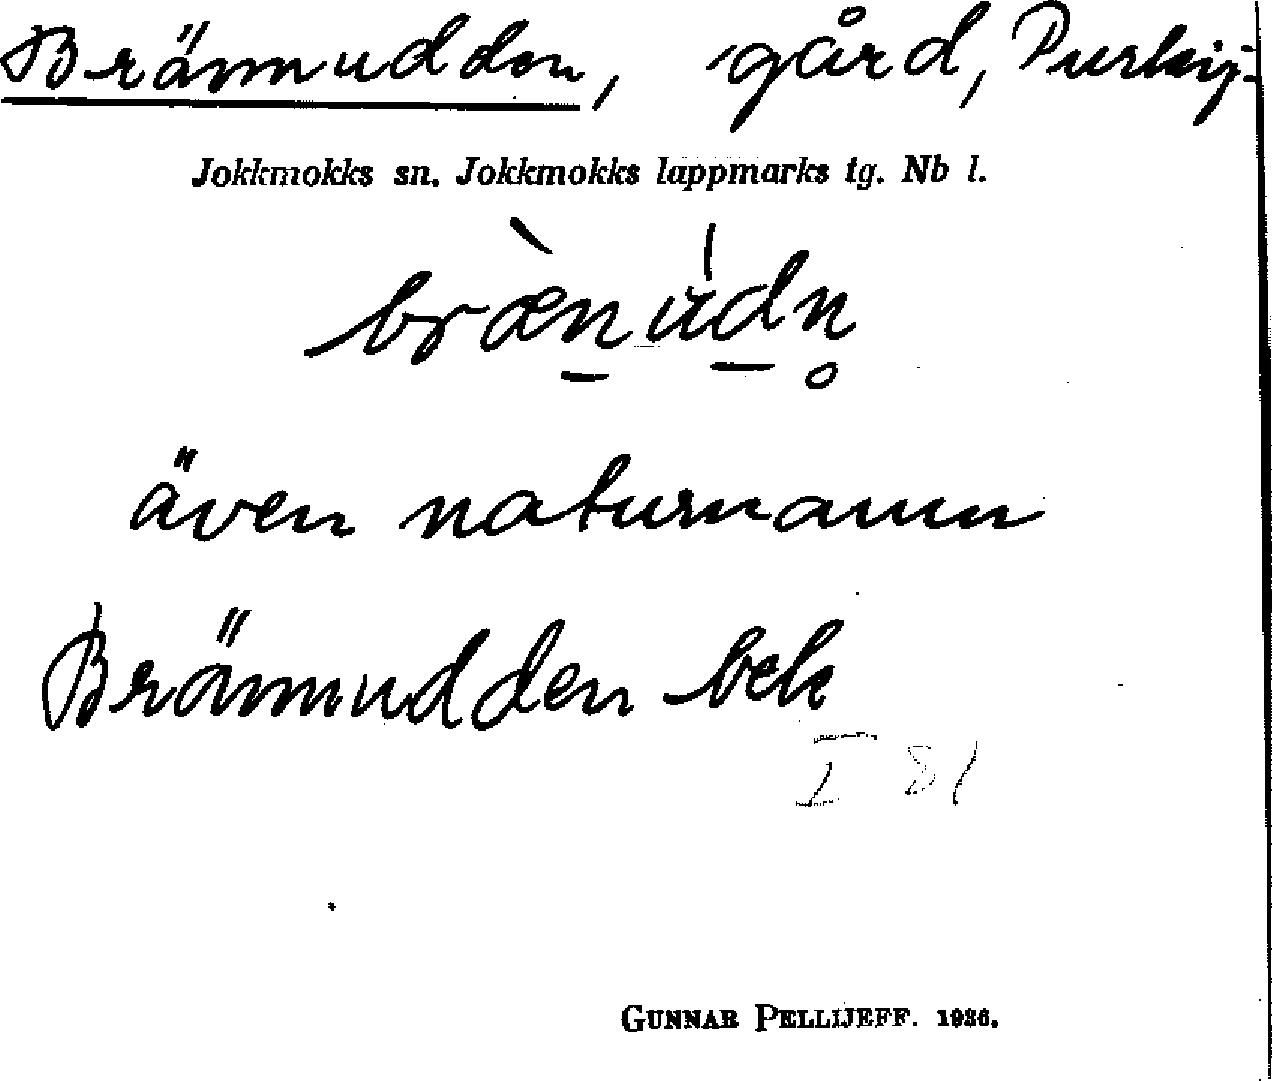 Brännudden, gård, Purkij-
Jokkmokks sn. Jokkmokks lappmarks tg. Nb l.
bræ̀nu̍dn̥
även naturnamn
Brännudden bek
I 81
GUNNAR PELLIJEFF. 1936.